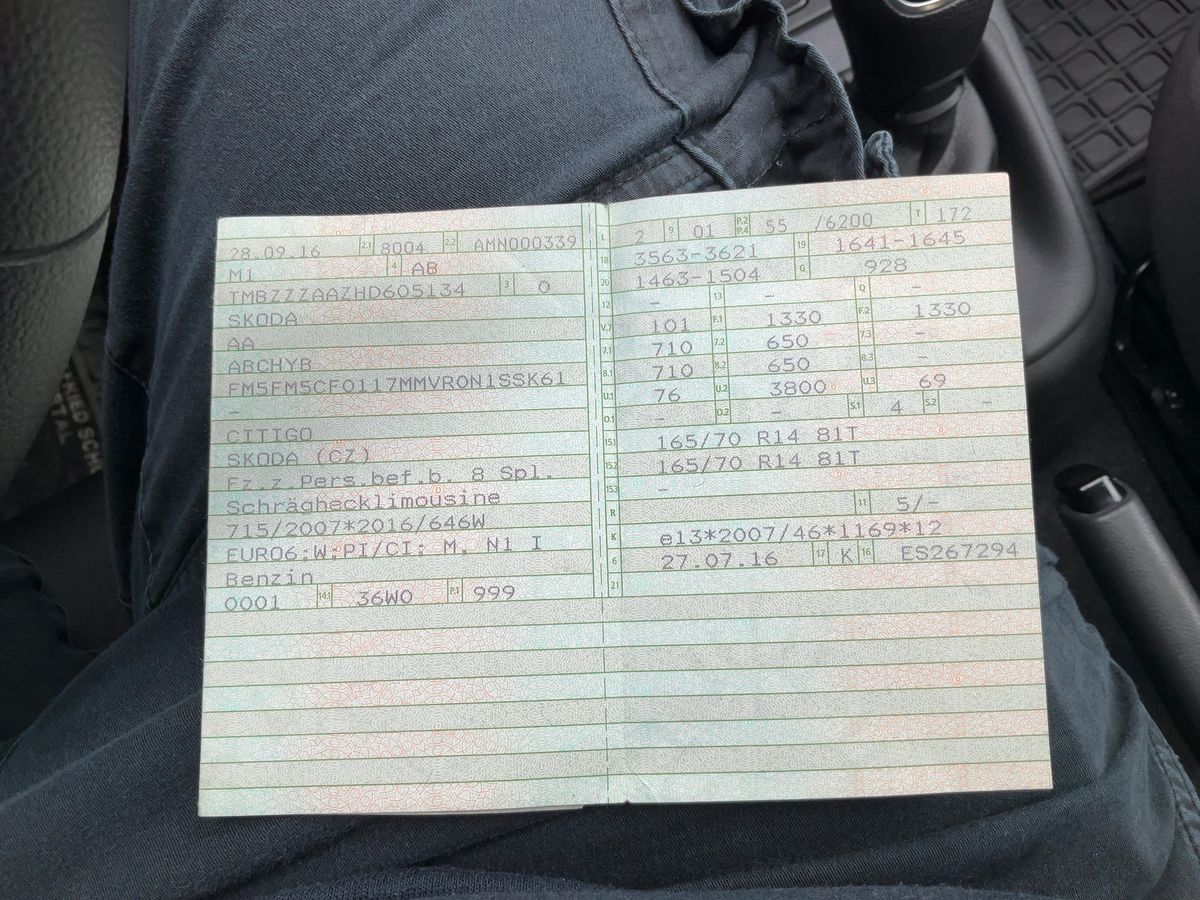 28.09.16 2.1 8004 2.2 AMN000339
M1 4 AB
TMBZZZAAZHD605134 3 0
SKODA
AA
ABCHYB
FM5FM5CF0117MMVRON1SSK61
-
CITIGO
SKODA (CZ)
Fz.z.Pers.bef.b. 8 Spl.
Schräghecklimousine
715/2007*2016/646W
EURO6;W;PI/CI; M, N1 I
Benzin
0001 14.1 36W0 P.1 999
L 2 9 01 P.2 P.4 55 /6200 T 172
18 3563-3621 19 1641-1645
20 1463-1504 G 928
12 - 13 - Q -
V.7 101 F.1 1330 F.2 1330
7.1 710 7.2 650 7.3 -
8.1 710 8.2 650 8.3 -
U.1 76 U.2 3800 U.3 69
O.1 - O.2 - S.1 4 S.2 -
15.1 165/70 R14 81T
15.2 165/70 R14 81T
15.3 -
R 11 5/-
K e13*2007/46*1169*12
6 27.07.16 17 K 16 ES267294
21